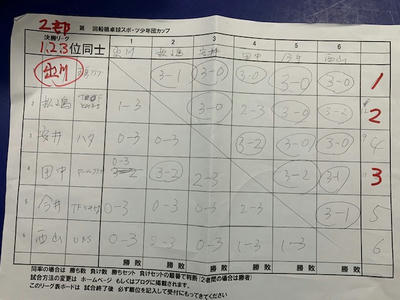 2部 第 回船橋卓球スポーツ少年団カップ
決勝リーグ
1.2.3位同士
1 2 3 4 5 6
出川 松島 安井 田中 今井 西山
出川 3-1 3-0 3-0 3-0 3-0 1
2 松島 1-3 3-0 2-3 3-0 3-0 2
3 安井 ハタ 0-3 0-3 3-2 3-0 3-0 4
4 田中 0-3 3-2 2-3 3-2 3-1 3
5 今井 0-3 0-3 0-3 2-3 3-1 5
6 西山 0-3 2-3 0-3 1-3 1-3 6
勝敗 勝敗 勝敗 勝敗 勝敗 勝敗
同率の場合は 勝ち数 負け数 勝ちセット 負けセットの順番で時数(2者間の場合は勝者)
試合方法の変更は ホームページ もしくはブログに掲載されます。
このリーグ表ボードは 試合終了後 必ず順位を記入して受付にもってきてください